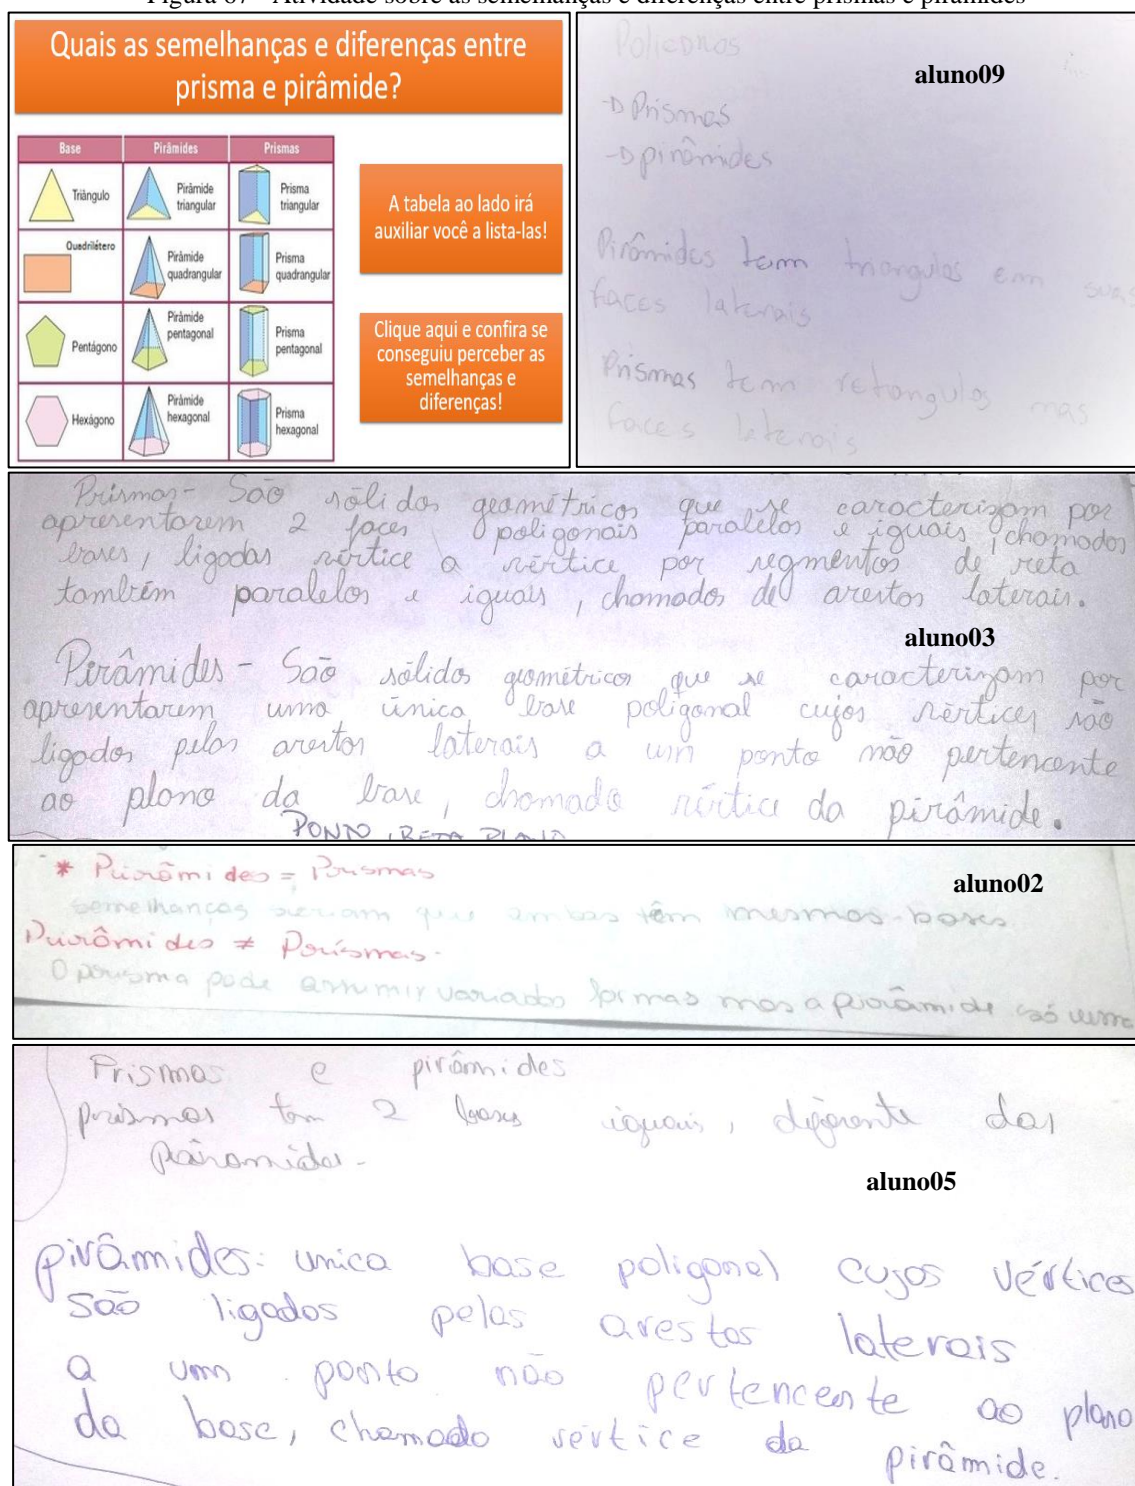 Figura 67 - Atividade sobre as semelhanças e diferenças entre prismas e pirâmides
Quais as semelhanças e diferenças entre
prisma e pirâmide?
Base Pirâmides Prismas
Triângulo Pirâmide triangular Prisma triangular
Quadrilátero Pirâmide quadrangular Prisma quadrangular
Pentágono Pirâmide pentagonal Prisma pentagonal
Hexágono Pirâmide hexagonal Prisma hexagonal
A tabela ao lado irá
auxiliar você a lista-las!
Clique aqui e confira se
conseguiu perceber as
semelhanças e
diferenças!
aluno09
Prismas
pirâmides
Pirâmides tem triangulos em suas
faces laterais
Prismas tem retangulos nas
faces laterais
Prismas - São sólidos geométricos que se caracterizam por
apresentarem 2 faces poligonais paralelas e iguais, chamadas
bases, ligadas vértice a vértice por segmentos de reta
também paralelos e iguais, chamados de arestas laterais.
aluno03
Pirâmides - São sólidos geométricos que se caracterizam por
apresentarem uma única base poligonal cujos vértices são
ligados pelas arestas laterais a um ponto não pertencente
ao plano da base, chamado vértice da pirâmide.
PONTO, RETA PLANO
* Pirâmides = Prismas
aluno02
semelhanças seriam que ambas têm mesmas bases
Pirâmides ≠ Prismas.
O prisma pode assumir variados formas mas a pirâmide só uma
Prismas e pirâmides
prismas tem 2 bases iguais, diferente das
pirâmides.
aluno05
pirâmides: unica base poligonal cujos vértices
são ligados pelas arestas laterais
a um ponto não pertencente ao plano
da base, chamado vértice da pirâmide.